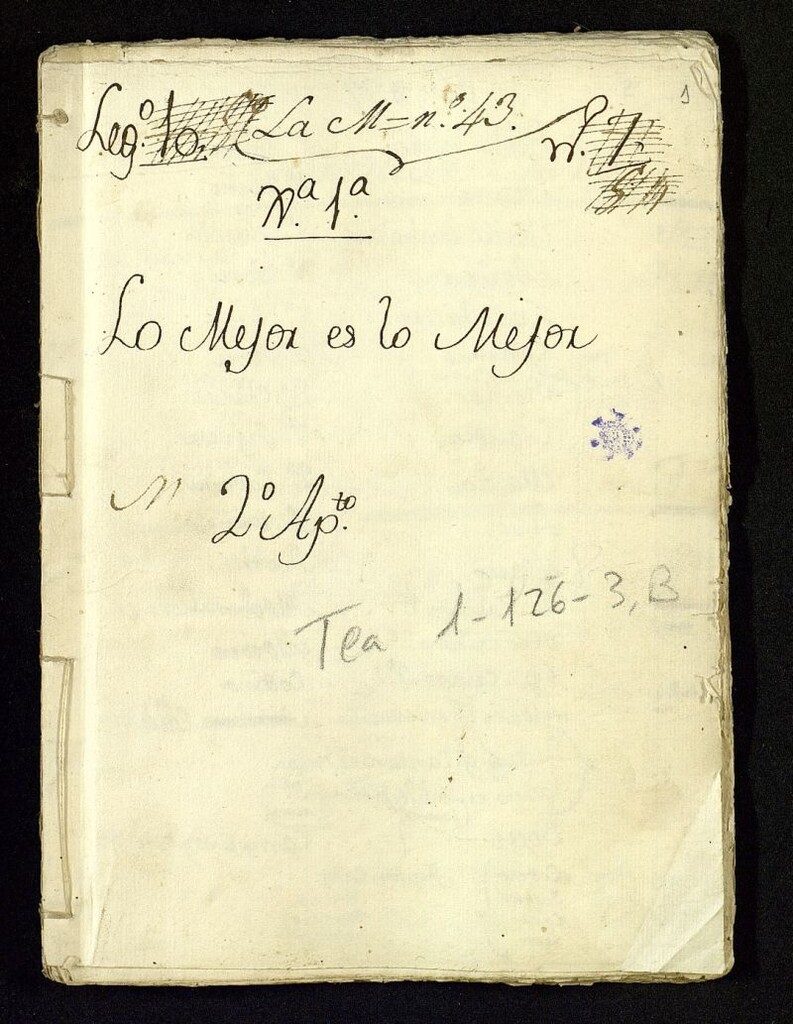 1
Leg.º La M=n.º 43. n.
J.ª 1.ª
Lo Mejor es lo Mejor
M 2º Ap.to
Tea 1-126-3, B